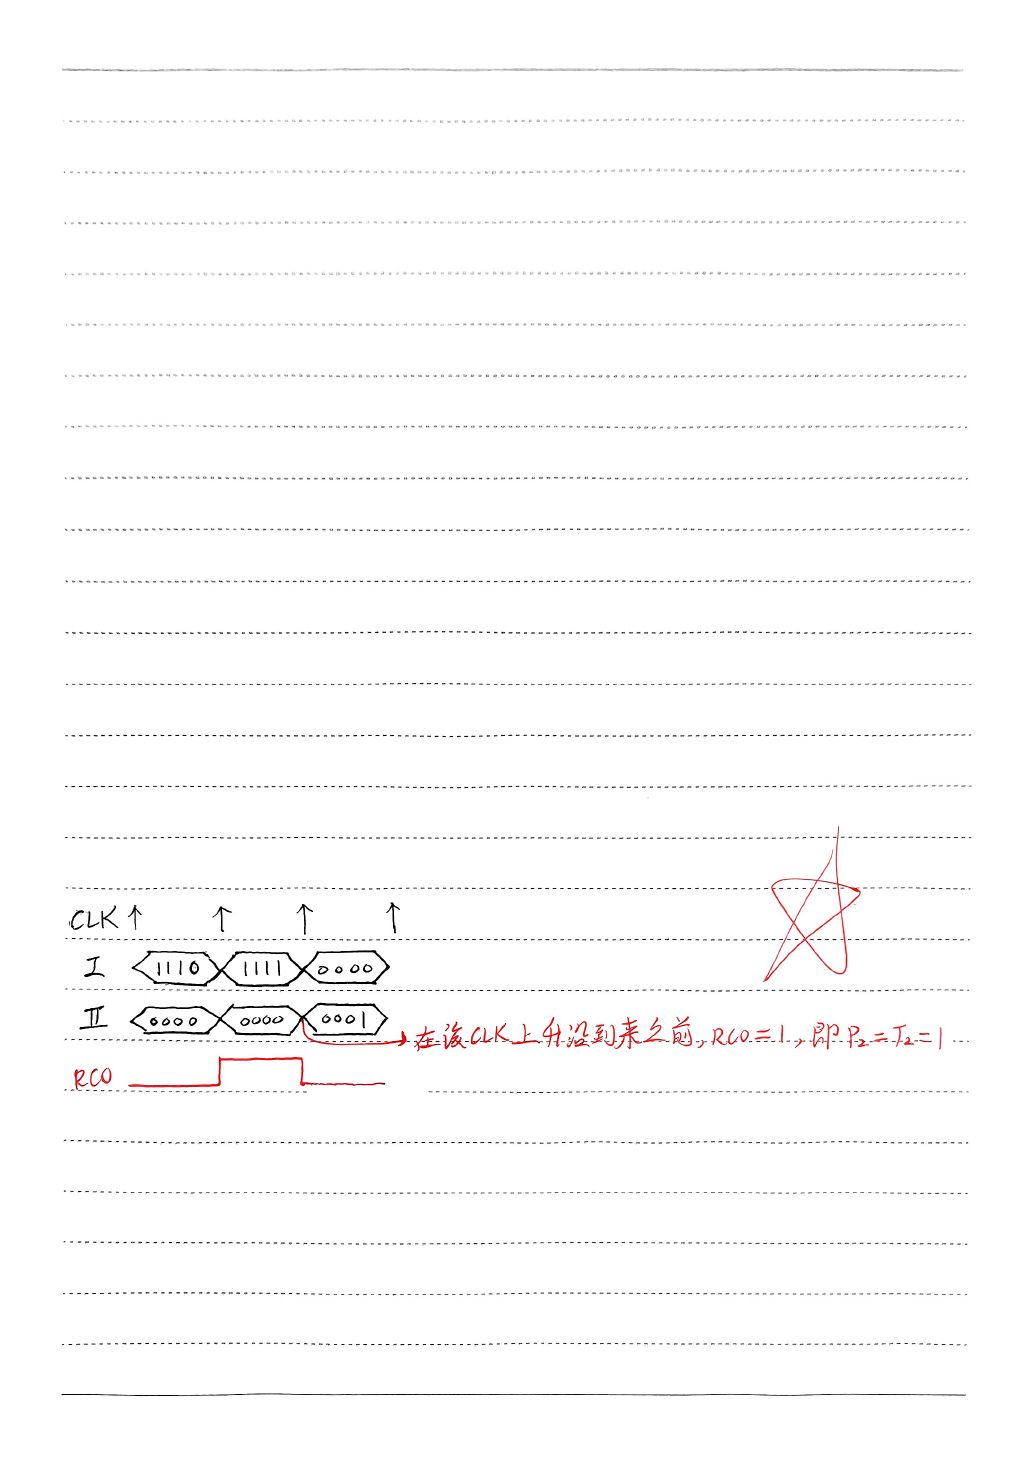 CLK ↑ ↑ ↑ ↑
I 1110 1111 0000
II 0000 0000 0001
在该CLK上升沿到来之前,RCO=1,即P₂=T₂=1
RCO